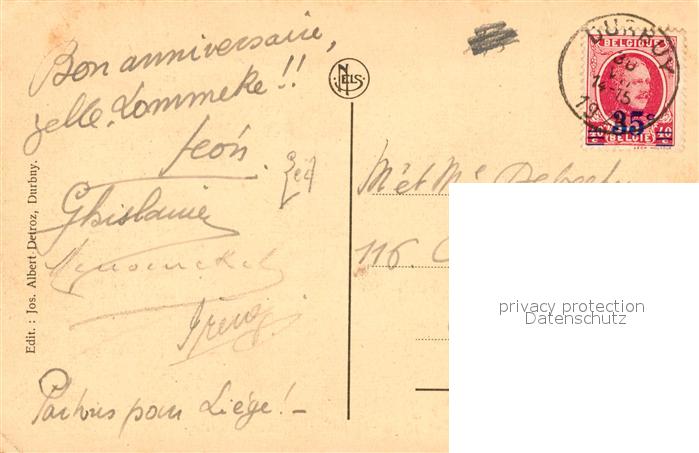 Bon anniversaire,
zelle Lommeke!!
Léon
Ghislaine
Irène
Partons pour Liége! -
Edit. : Jos. Albert Detroz, Durbny.
NELS
DURBUY
14-15
19
BELGIQUE
35c
BELGIË
M' et Me
116.
privacy protection
Datenschutz